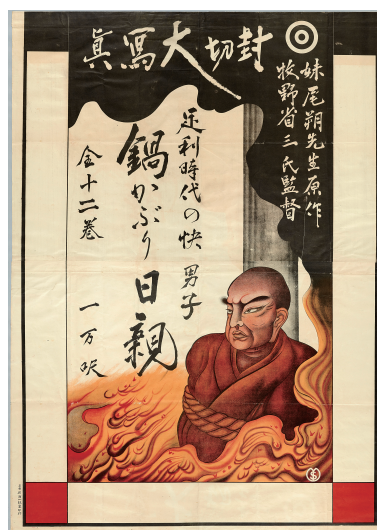 封切大冩眞
妹尾朔先生原作
牧野省三氏監督
足利時代の快男子
鍋かぶり日親
全十二巻
一万呎